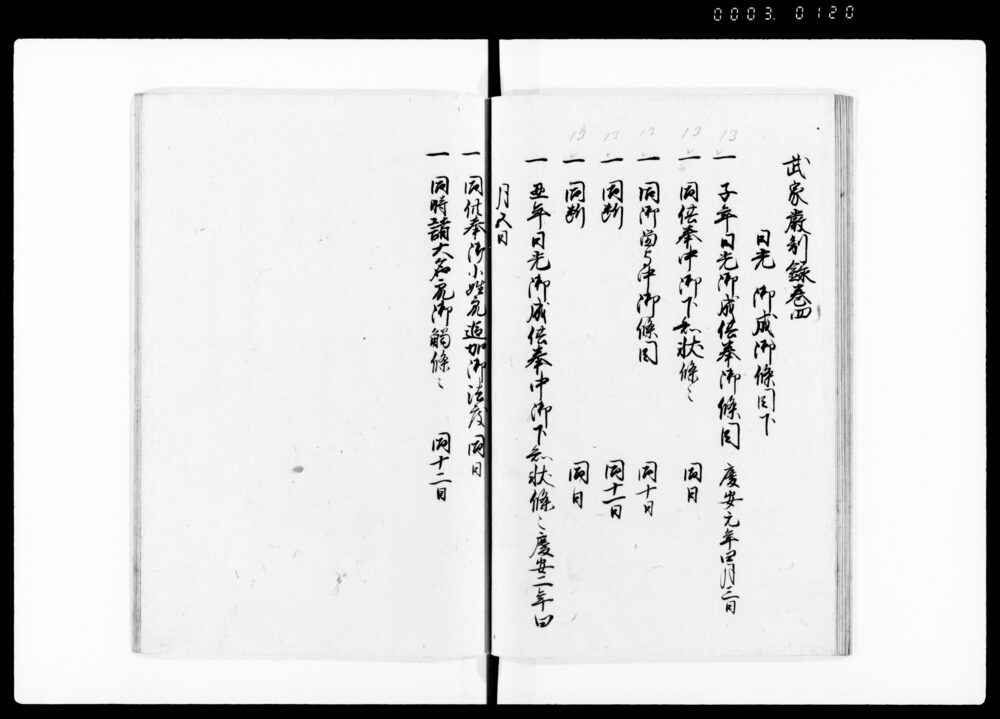 0003. 0120
13 13 13 13 13
武家嚴制録巻四
日光 御成御條目下
一 子年日光御成供奉御條目 慶安元年四月三日
一 同供奉中御下知状條〻 同日
一 同御留守中御條目 同十日
一 同断 同十一日
一 同断 同日
一 丑年日光御成供奉中御下知状條〻 慶安二年四
月五日
一 同供奉御小姓衆追加御法度 同日
一 同時諸大名衆御觸條〻 同十二日